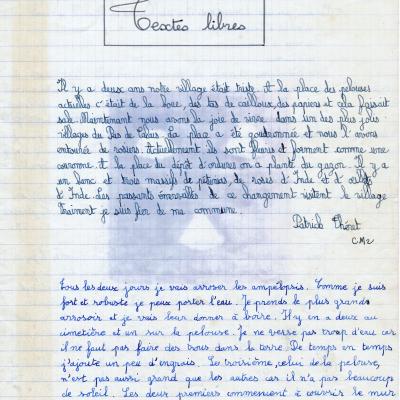 Textes libres
Il y a deux ans notre village était triste. A la place des pelouses
actuelles c'était de la boue, des tas de cailloux, des papiers et cela faisait
sale. Maintenant nous avons la joie de vivre dans l'un des plus jolis
villages du Pas de Calais. La place a été goudronnée et nous l'avons
entourée de rosiers. Actuellement ils sont fleuris et forment comme une
couronne. A la place du dépôt d'ordures on a planté du gazon. Il y a
un banc et trois massifs de pétunias, de roses d'Inde et d'œillets
d'Inde. Des passants émerveillés de ce changement visitent le village.
Vraiment je suis fier de ma commune.
Patrick
CM2
Tous les deux jours je vais arroser les ampélopsis. Comme je suis
fort et robuste je peux porter l'eau. Je prends le plus grand
arrosoir et je vais leur donner à boire. Il y en a deux au
cimetière et un sur la pelouse. Je ne verse pas trop d'eau car
il ne faut pas faire des trous dans la terre. De temps en temps
j'ajoute un peu d'engrais. Le troisième, celui de la pelouse,
n'est pas aussi grand que les autres car il n'a pas beaucoup
de soleil. Les deux premiers commencent à couvrir le mur